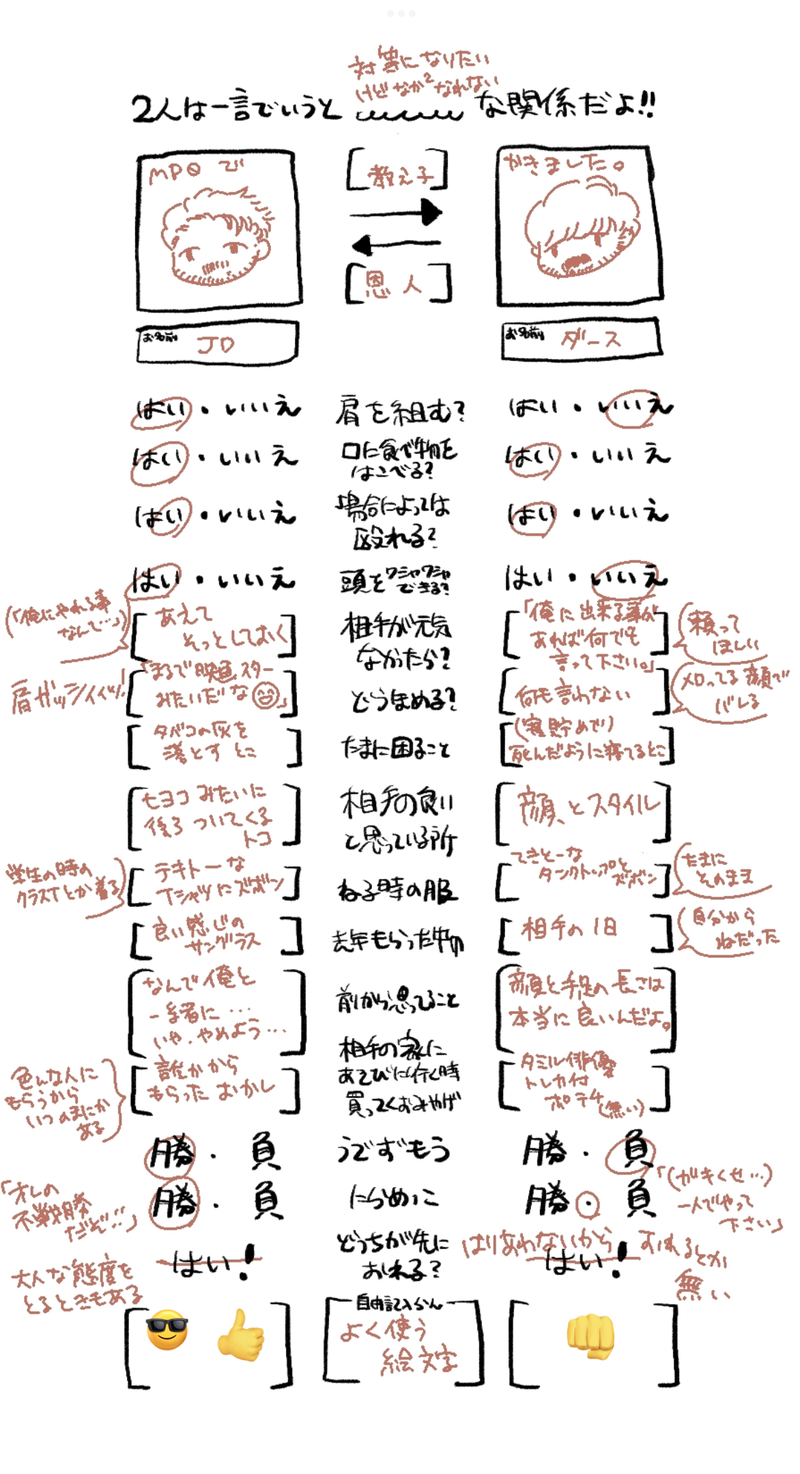 対等になりたい
けどなか²なれない
2人は一言でいうと な関係だよ!!
MPQで
[教え子]
かきました。
[恩人]
お名前 JD
お名前 ダース
はい・いいえ 肩を組む? はい・いいえ
はい・いいえ 口に食べ物を はい・いいえ
はこべる?
はい・いいえ 場合によっては はい・いいえ
殴れる?
はい・いいえ 頭をワシャワシャ はい・いいえ
できる?
(「俺にやれる事
なんて…」)
あえて
そっとしておく
相手が元気
なかったら?
「俺に出来る事が
あれば何でも
言って下さい。」
頼って
ほしい
肩ガッシイィッ!
「まるで映画スター
みたいだな😊」
どうほめる?
何も言わない
メロってる顔で
バレる
タバコの灰を
落とすとこ
たまに困ること
(寝貯めで)
死んだように寝てるとこ
ヒヨコみたいに
後ろついてくる
トコ
相手の良い
と思っている所
顔、とスタイル
学生の時の
クラスTとか着る
テキトーな
Tシャツにズボン
ねる時の服
てきとーな
タンクトップと
ズボン
たまに
そのまま
良い感じの
サングラス
去年もらったもの
相手の1日
自分から
ねだった
なんで俺と
一緒に…
いや、やめよう…
前から思ってること
顔と手足の長さは
本当に良いんだよ。
色んな人に
もらうから
いつのまにか
ある
誰かから
もらったおかし
相手の家に
あそびに行く時
買ってくおみやげ
タミル俳優
トレカ付
ポテチ(無い)
勝・負 うでずもう 勝・負
「オレの
不戦勝
だぞ!!」
勝・負 にらめっこ 勝・負
「(ガキくせ…)
一人でやって
下さい」
はい! どっちが先に はい!
おれる?
大人な態度を
とるときもある
はりあわないから おれるとか
無い
😎 👍
自由記入らん
よく使う
絵文字
👊